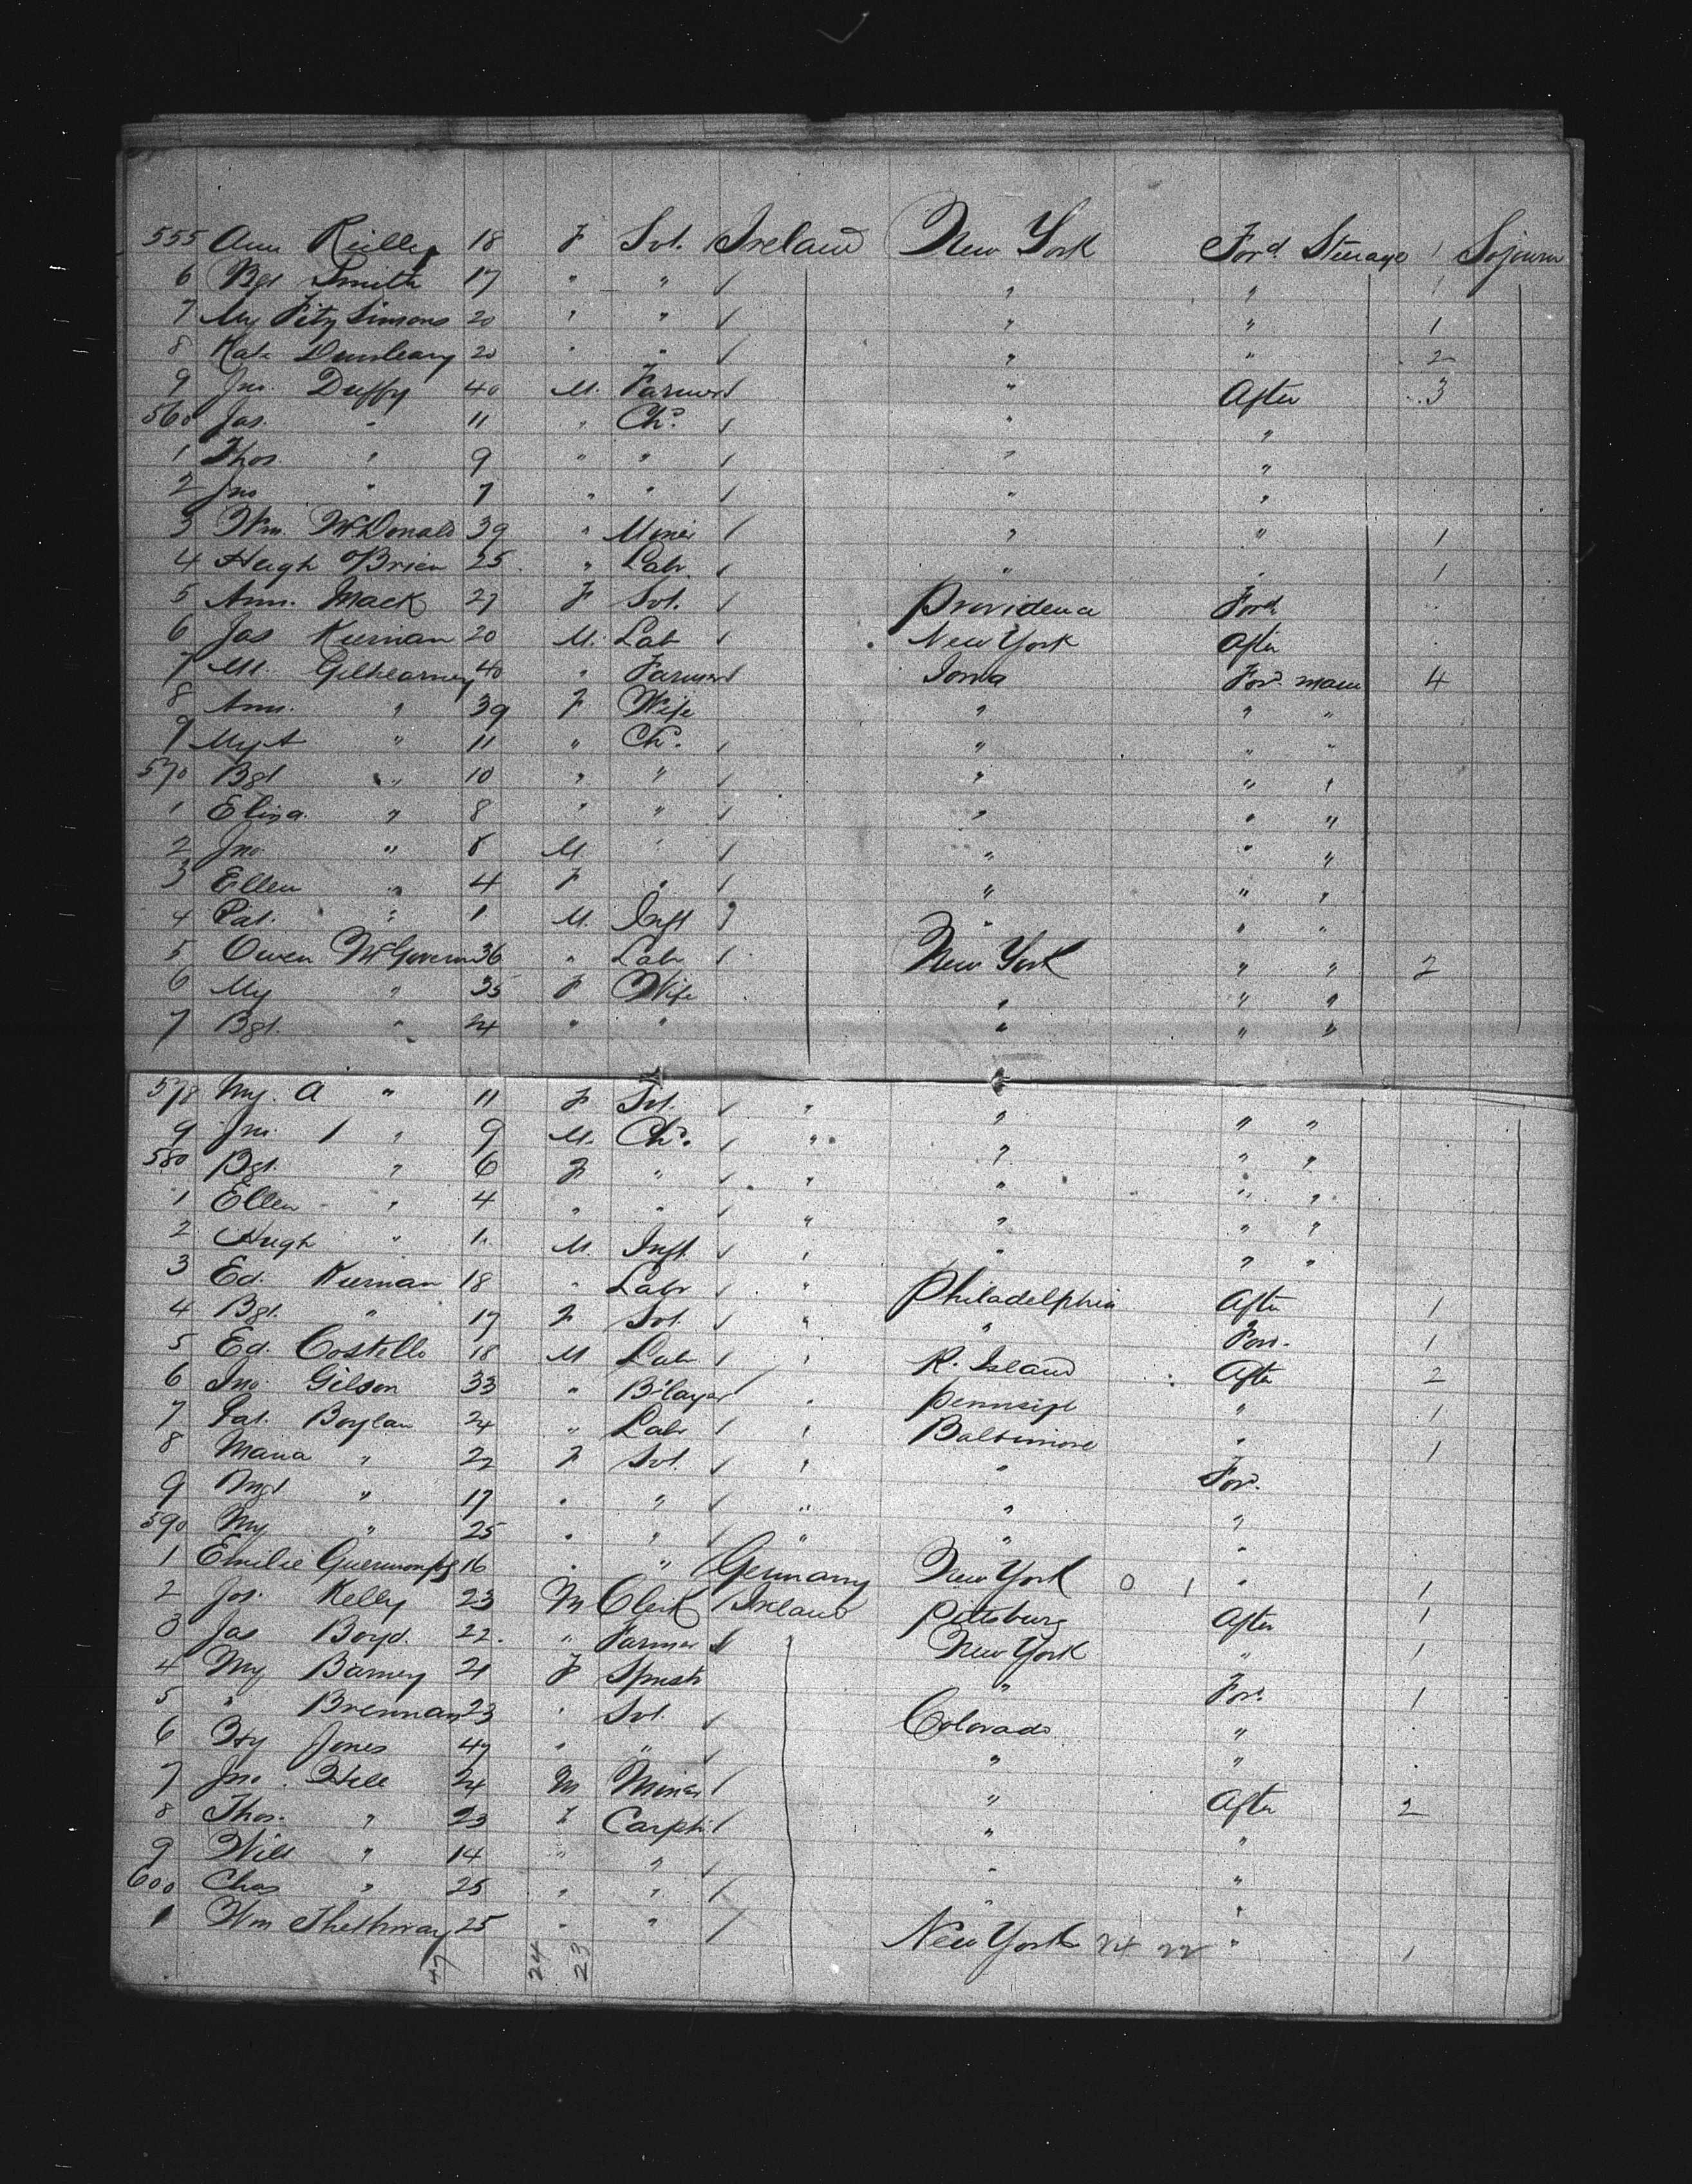 555 Ann Reilly 18 F Svt. Ireland New York Ford. Steerage 1 Sojourn
6 Bgt Smith 17 " " " " 1
7 My Fitz Simons 20 " " " " 1
8 Kate Dunleavy 20 " " " " 2
9 Jno. Duffy 40 M. Farmer " After 3
560 Jas. " 11 " Chd. " "
1 Thos. " 9 " " " "
2 Jno " 7 " " " "
3 Wm. McDonald 39 " Miner " " 1
4 Hugh O'Brien 25 " Labr. " " 1
5 Ann. Mack 27 F Svt. Providence Ford.
6 Jas Kiernan 20 M. Lab New York After
7 Ml. 40 " Farmer Iowa Ford. main 4
8 Ann. " 39 F Wife " " "
9 Mgt " 11 " Chd. " " "
570 Bgt " 10 " " " " "
1 Eliza. " 8 " " " " "
2 Jno " 8 M " " " "
3 Ellen " 4 F " " " "
4 Pat. " 1 M. Inft " " "
5 Owen McGovern 36 " Labr New York " " 2
6 My " 35 F Wife " " "
7 Bgt. " 24 " " " " "
578 My. A " 11 F Svt. " " " "
9 Jno. " 9 M. Chd. " " " "
580 Bgt. " 6 F " " " " "
1 Ellen " 4 " " " " " "
2 Hugh " 1 M. Inft. " " " "
3 Ed. Kiernan 18 " Labr " Philadelphia After 1
4 Bgt. " 17 F Svt. " " Ford. 1
5 Ed. Costello 18 M Labr " R. Island After 2
6 Jno. Gilson 33 " B'layer " " 1
7 Pat. Boylan 24 " Labr " Baltimore " 1
8 Maria " 22 F Svt. " " Ford.
9 Mgt " 17 " " " " "
590 My " 25 " " " " "
1 Emilie 16 " " Germany New York 0 1 " 1
2 Jos. Kelly 23 M Clerk Ireland Pittsburg After 1
3 Jas Boyd. 22. " Farmer New York " 1
4 My Barney 21 F Spinstr " Ford. 1
5 " Brennan 23 " Svt. Colorado "
6 Hy Jones 47 " " " "
7 Jno. Hill 24 M Miner " After 2
8 Thos. " 23 " Carptr " "
9 Will " 14 " " " "
600 Chas " 25 " " " "
1 Wm 25 " " New York 24 22 " 1
47 24 23